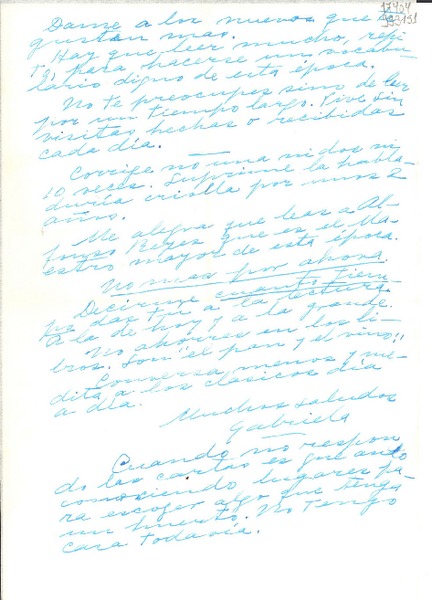 17404
193151
Dame a los nuevos que te
gustan mas.
Hay que leer mucho, repi
to, para hacerse un vocabu-
lario digno de esta época.
No te preocupes sino de leer
por un tiempo largo. Vive sin
visitas hechas o recibidas
cada día.
Corrige no una ni dos ni
10 veces. Suprime la habla-
duría criolla por unos 2
años.
Me alegra que leas a Al-
fonso Reyes que es el Ma-
estro mayor de esta época.
No mas por ahora.
Decirme cuanto tiem-
po das tu a la lectura.
A la de hoy y a la grande.
No ahorres en los li-
bros. Son "el pan y el vino".!
Conversa menos y me-
dita a los clásicos día
a día.
Muchos saludos
Gabriela
Cuando no respon
do las cartas es que ando
conociendo lugares pa-
ra escoger algo que tenga
un huerto. No tengo
casa todavía.